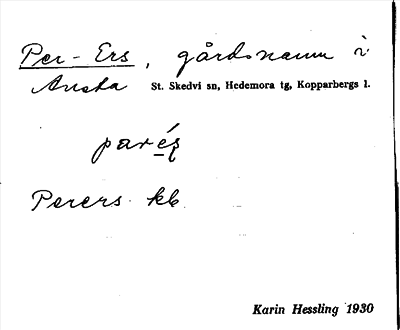 Per-Ers, gårdsnamn i
Ansta St. Skedvi sn, Hedemora tg, Kopparbergs l.
Perers kb
Karin Hessling 1930